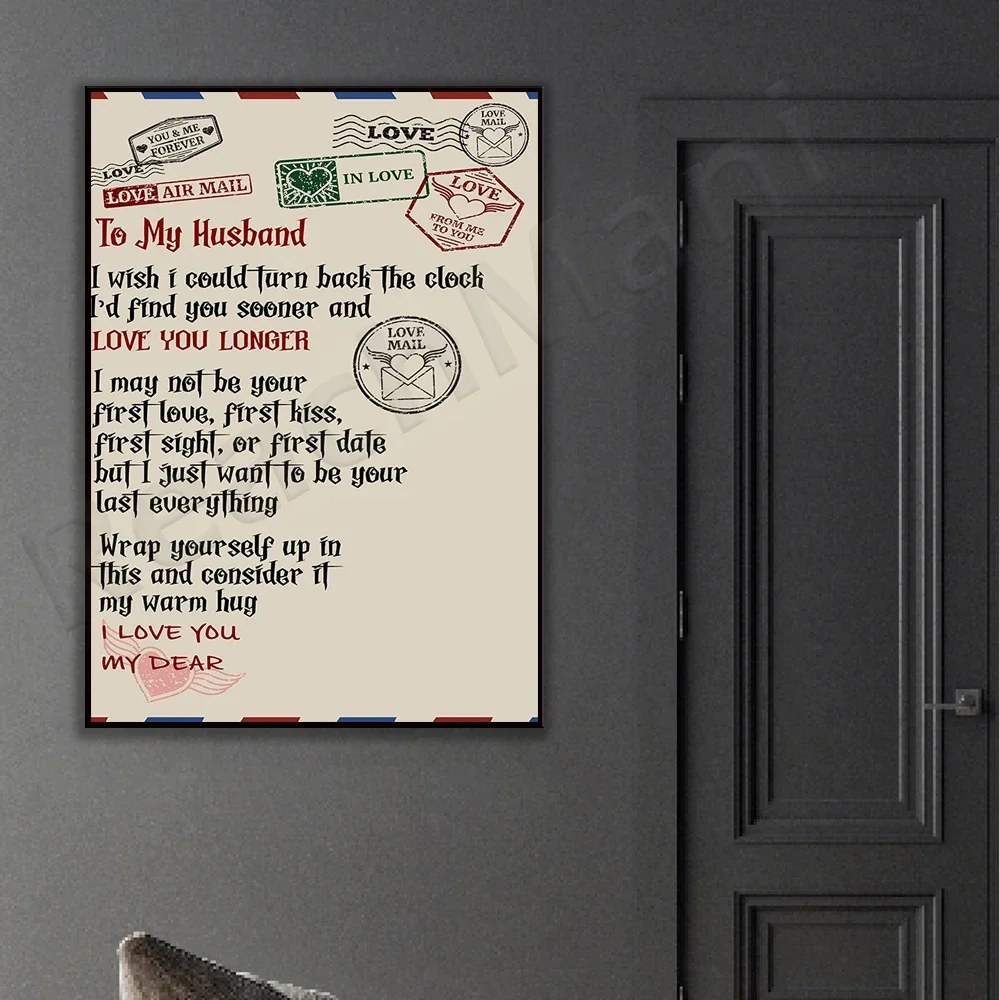 YOU & ME
FOREVER
LOVE
LOVE AIR MAIL
LOVE
LOVE
MAIL
IN LOVE
LOVE
FROM ME
TO YOU
To My Husband
I wish i could turn back the clock
I'd find you sooner and
LOVE YOU LONGER
LOVE
MAIL
I may not be your
first love, first kiss,
first sight, or first date
but I just want to be your
last everything
Wrap yourself up in
this and consider it
my warm hug
I LOVE YOU
MY DEAR